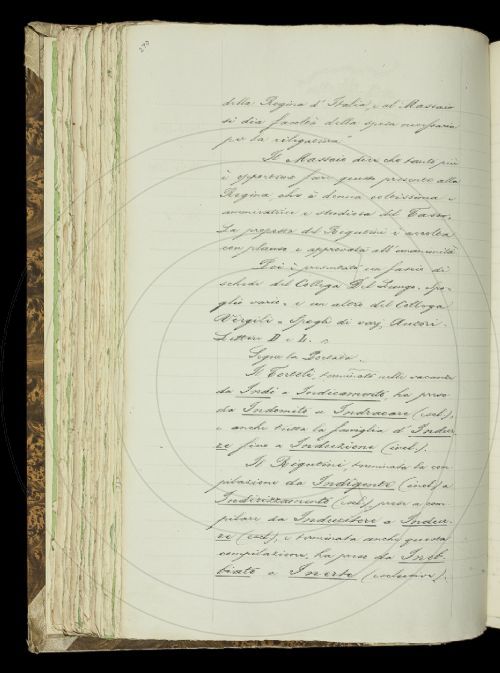 270
della Regina d'Italia, e al Massaio
si dia facoltà della spesa necessaria
per la rilegatura.
Il Massaio dice che tanto più
è opportuno fare questo presente alla
Regina, che è donna coltissima e
ammiratrice e studiosa del Tasso.
La proposta del Rigutini è accolta
con plauso e approvata all'unanimità
Poi è presentato un fascio di
schede del Collega Del Lungo. Spo-
glio vario - e un altro del Collega
Vergili - Spogli di varj Autori -
Lettere D e L.
Segue la Portata.
Il Tortoli, terminato nelle vacanze
da Indi a Indicamento, ha preso
da Indomito a Indracare (escl.),
e anche tutta la famiglia d'Indur-
re fino a Induzione (incl.).
Il Rigutini, terminata la com-
pilazione da Indigente (incl.) a
Indirizzamento (escl.), prese a com-
pilare da Indovitore a Indur-
re (escl.), e terminata anche questa
compilazione, ha preso da Ineb-
briato a Inerte (esclusive).